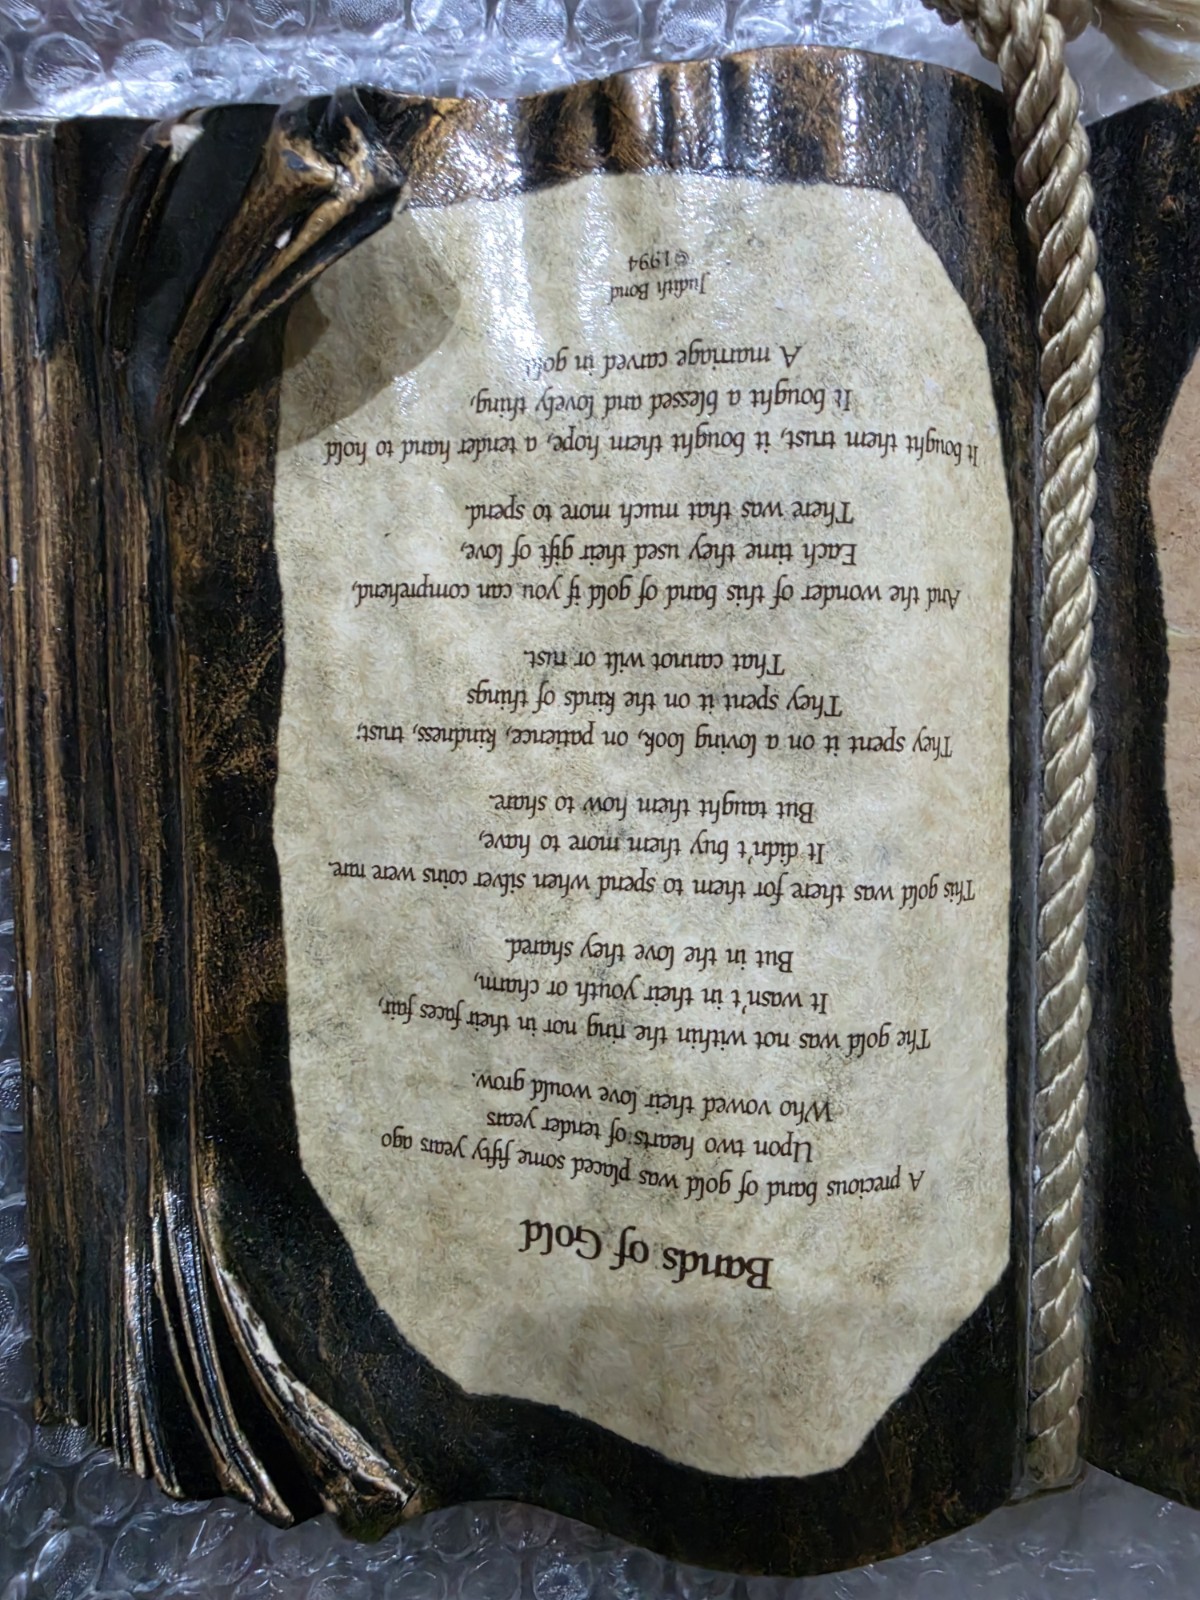 Bands of Gold
A precious band of gold was placed some fifty years ago
Upon two hearts of tender years
Who vowed their love would grow.
The gold was not within the ring nor in their faces fair,
It wasn't in their youth or charm,
But in the love they shared.
This gold was there for them to spend when silver coins were rare.
It didn't buy them more to have,
But taught them how to share.
They spent it on a loving look, on patience, kindness, trust;
They spent it on the kinds of things
That cannot wilt or rust.
And the wonder of this band of gold if you can comprehend,
Each time they used their gift of love,
There was that much more to spend.
It bought them trust, it bought them hope, a tender hand to hold
It bought a blessed and lovely thing,
A marriage carved in gold.
Judith Bond
©1994